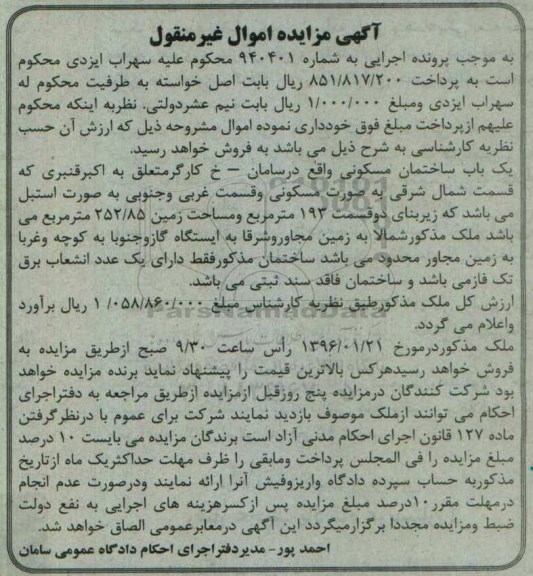 آگهی مزایده اموال غیرمنقول
به موجب پرونده اجرایی به شماره ۹۴۰۴۰۱ محکوم علیه سهراب ایزدی محکوم
است به پرداخت ۸۵۱/۸۱۷/۲۰۰ ریال بابت اصل خواسته به ظرفیت محکوم له
سهراب ایزدی ومبلغ ۱/۰۰۰/۰۰۰ ریال بابت نیم عشردولتی. نظربه اینکه محکوم
علیهم ازپرداخت مبلغ فوق خودداری نموده اموال مشروحه ذیل که ارزش آن حسب
نظریه کارشناسی به شرح ذیل می باشد به فروش خواهد رسید.
یک باب ساختمان مسکونی واقع درسامان – خ کارگرمتعلق به اکبرقنبری که
قسمت شمال شرقی به صورت مسکونی وقسمت غربی وجنوبی به صورت استبل
می باشد که زیربنای دوقسمت ۱۹۳ مترمربع ومساحت زمین ۲۵۲/۸۵ مترمربع می
باشد ملک مذکورشمالا به زمین مجاوروشرقا به ایستگاه گازوجنوبا به کوچه وغربا
به زمین مجاور محدود می باشد ساختمان مذکورفقط دارای یک عدد انشعاب برق
تک فازمی باشد و ساختمان فاقد سند ثبتی می باشد.
ارزش کل ملک مذکورطبق نظریه کارشناس مبلغ ۱/۰۵۸/۸۶۰/۰۰۰ ریال برآورد
واعلام می گردد.
ملک مذکوردرمورخ ۱۳۹۶/۰۱/۲۱ رأس ساعت ۹/۳۰ صبح ازطریق مزایده به
فروش خواهد رسیدهرکس بالاترین قیمت را پیشنهاد نماید برنده مزایده خواهد
بود شرکت کنندگان درمزایده پنج روزقبل ازمزایده ازطریق مراجعه به دفتراجرای
احکام می توانند ازملک موصوف بازدید نمایند شرکت برای عموم با درنظرگرفتن
ماده ۱۲۷ قانون اجرای احکام مدنی آزاد است برندگان مزایده می بایست ۱۰ درصد
مبلغ مزایده را فی المجلس پرداخت ومابقی را ظرف مهلت حداکثریک ماه ازتاریخ
مذکوربه حساب سپرده دادگاه واریزوفیش آنرا ارائه نمایند ودرصورت عدم انجام
درمهلت مقرر۱۰درصد مبلغ مزایده پس ازکسرهزینه های اجرایی به نفع دولت
ضبط ومزایده مجددا برگزارمیگردد این آگهی درمعابرعمومی الصاق خواهد شد.
احمد پور- مدیردفتراجرای احکام دادگاه عمومی سامان
ParsNamadData